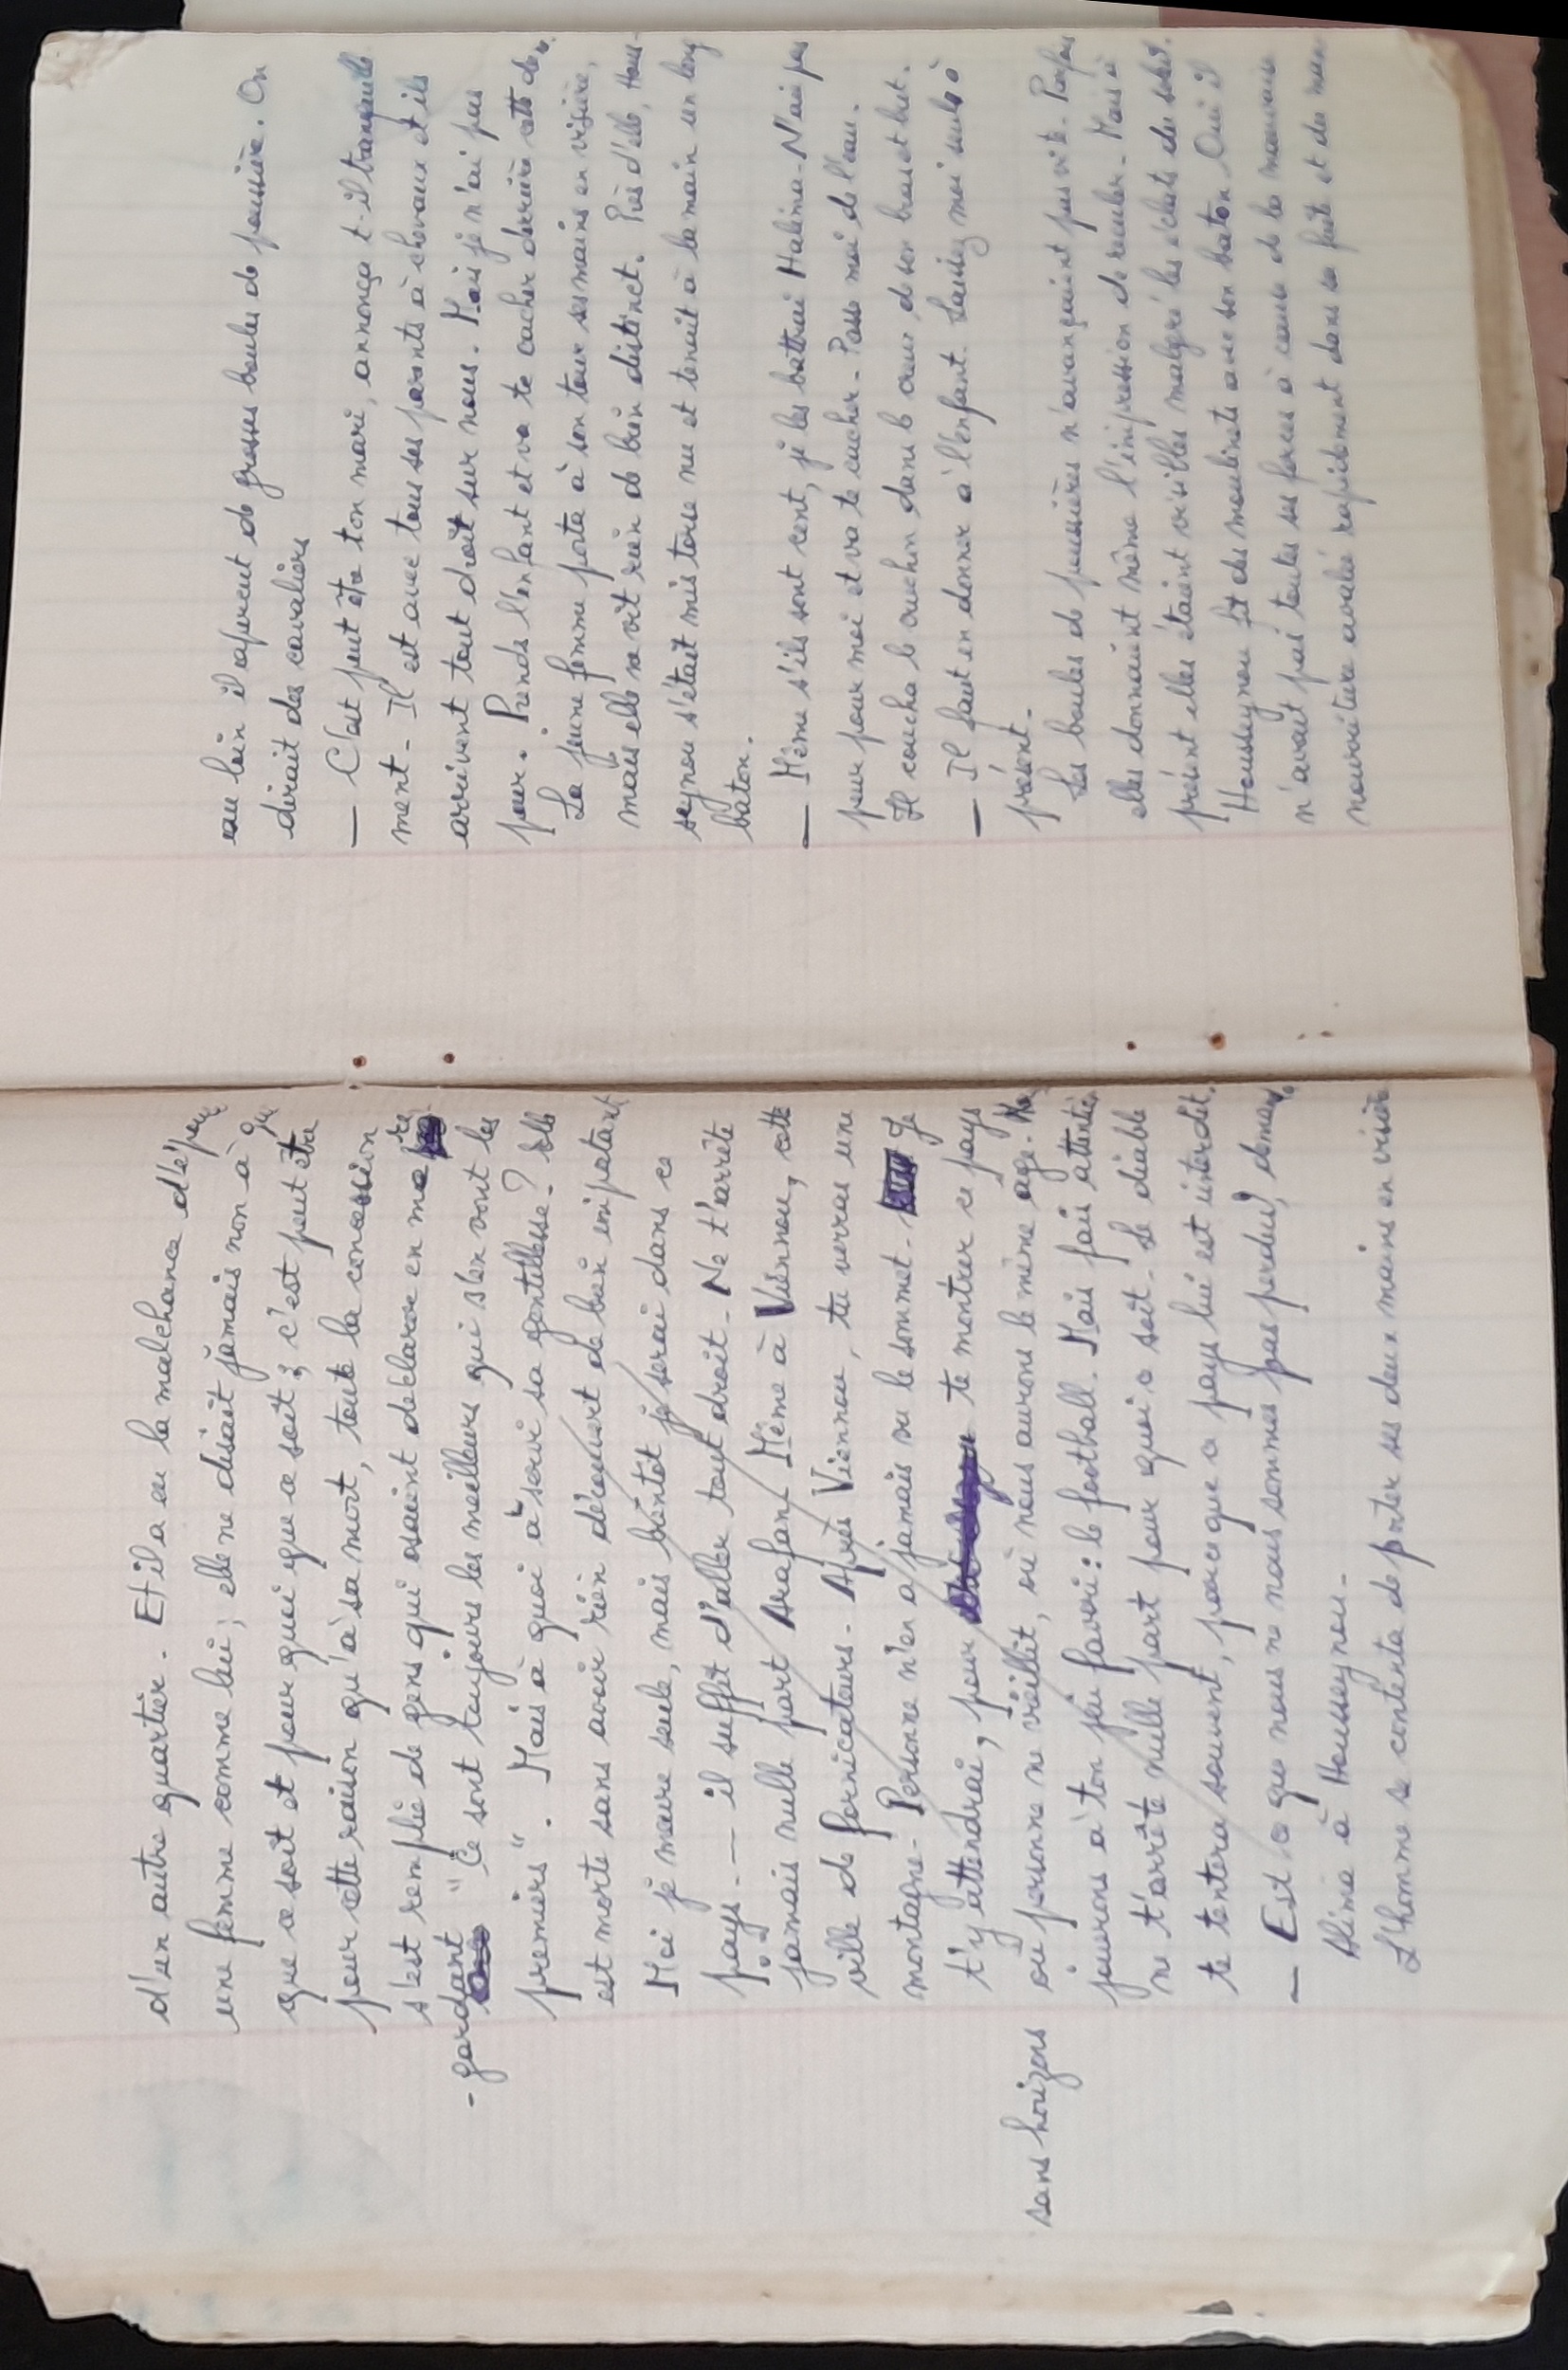 d'un autre quartier. Et il a eu la malchance d'épou
une femme comme lui ; elle ne disait jamais non à qui
que ce soit et pour quoi que ce soit ; c'est peut être
pour cette raison qu'à sa mort, toute la concession
s'est remplie de gens qui osaient déclarer en me re
-gardant "Ce sont toujours les meilleurs qui s'en vont les
premiers". Mais à quoi a servi sa gentillesse ? Elle
est morte sans avoir rien découvert de bien important
Moi je meure seule, mais bientôt je serai dans ce
pays. — il suffit d'aller tout droit. Ne t'arrête
jamais nulle part Arafan Même à Viennou, cette
ville de fornicateurs. Après Viennou, tu verras une
montagne. Personne n'en a jamais vu le sommet. Je
t'y attendrai, pour te montrer ce pays
sans horizons où personne ne vieillit, où nous aurons le même age.
jouerons à ton jeu favori : le football. Mais fais attention
ne t'arrête nulle part pour quoi ce soit. Le diable
te tentera souvent, parce que ce pays lui est interdit.
— Est ce que nous ne nous sommes pas perdus, deman
Alimia à Housseynou.
L'homme se contenta de porter ses deux mains en visière
au loin il aperçut de grosses boules de poussière. On
dirait des cavaliers
— C'est peut être ton mari, annonça t-il tranquille
ment. Il est avec tous ses parents à chevaux et ils
arrivent tout droit sur nous. Mais je n'ai pas
peur. Prends l'enfant et va te cacher derrière cette
La jeune femme porta à son tour ses mains en visière,
mais elle ne vit rien de bien distinct. Près d'elle, Hous-
seynou s'était mis torse nu et tenait à la main un long
baton.
— Même s'ils sont cent, je les battrai Halima. N'aie pas
peur pour moi et va te cacher. Passe moi de l'eau.
Il coucha le dans le creux de son bras et but.
— Il faut en donner à l'enfant. Laissez moi seul à
présent.
Les boules de poussières n'avançaient pas vite. Parfois
elles donnaient même l'impression de reculer. Mais à
présent elles étaient visibles malgré les éclats du soleil.
Housseynou fit des moulinets avec son baton. Oui il
n'avait pas toutes ses forces à cause de la mauvaise
nourriture avalée rapidement dans sa fuite et du man